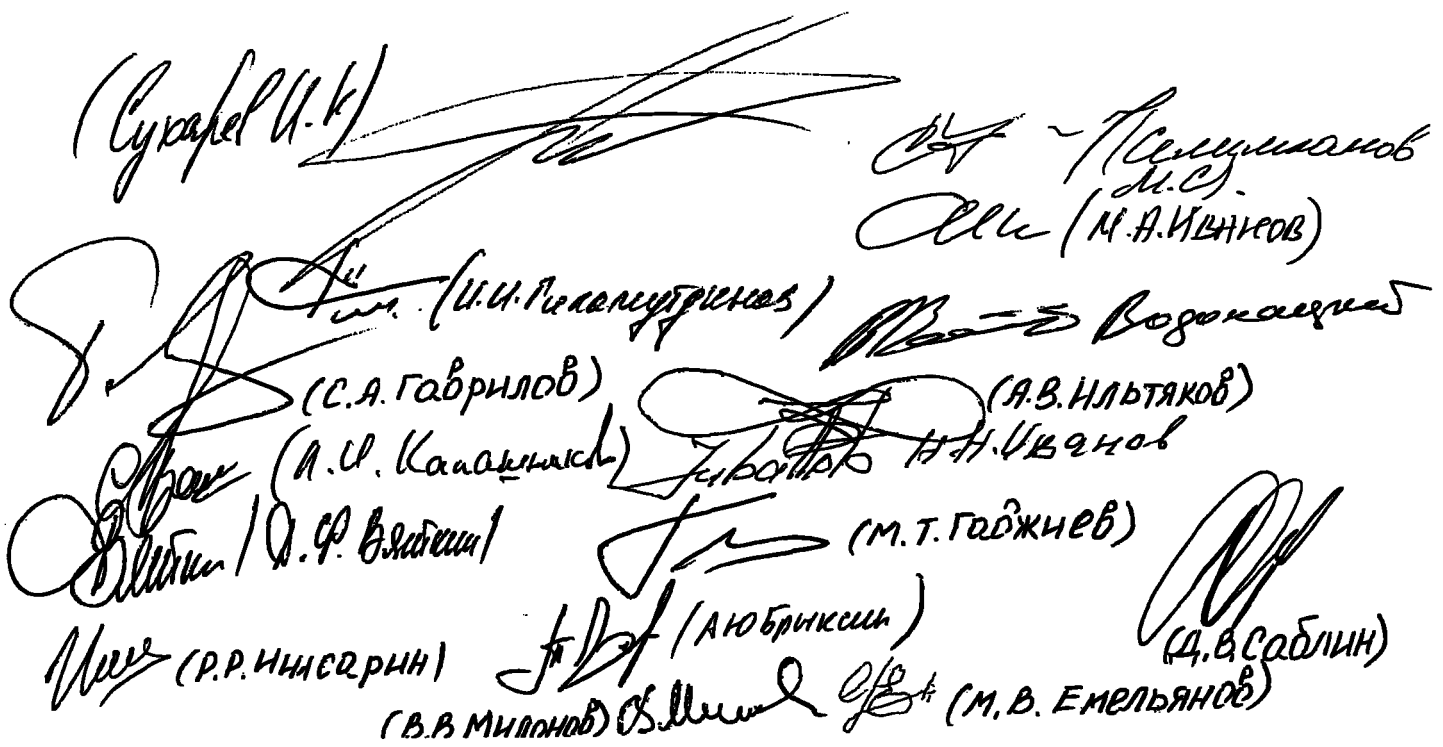 (Сухарев И.К)
Селимханов
М.С).
(М.А.Иванов)
(И.И.Гильмутдинов)
Водолацкий
(С.А.Гаврилов)
(А.В.Ильтяков)
(Л.И.Калашников)
Н.Н.Иванов
/Д.Ф.Вяткин/
(М.Т.Гаджиев)
(Р.Р.Ишсарин)
(А Ю Брыксин)
(Д.В.Саблин)
(В.В Милонов)
(М.В. Емельянов)